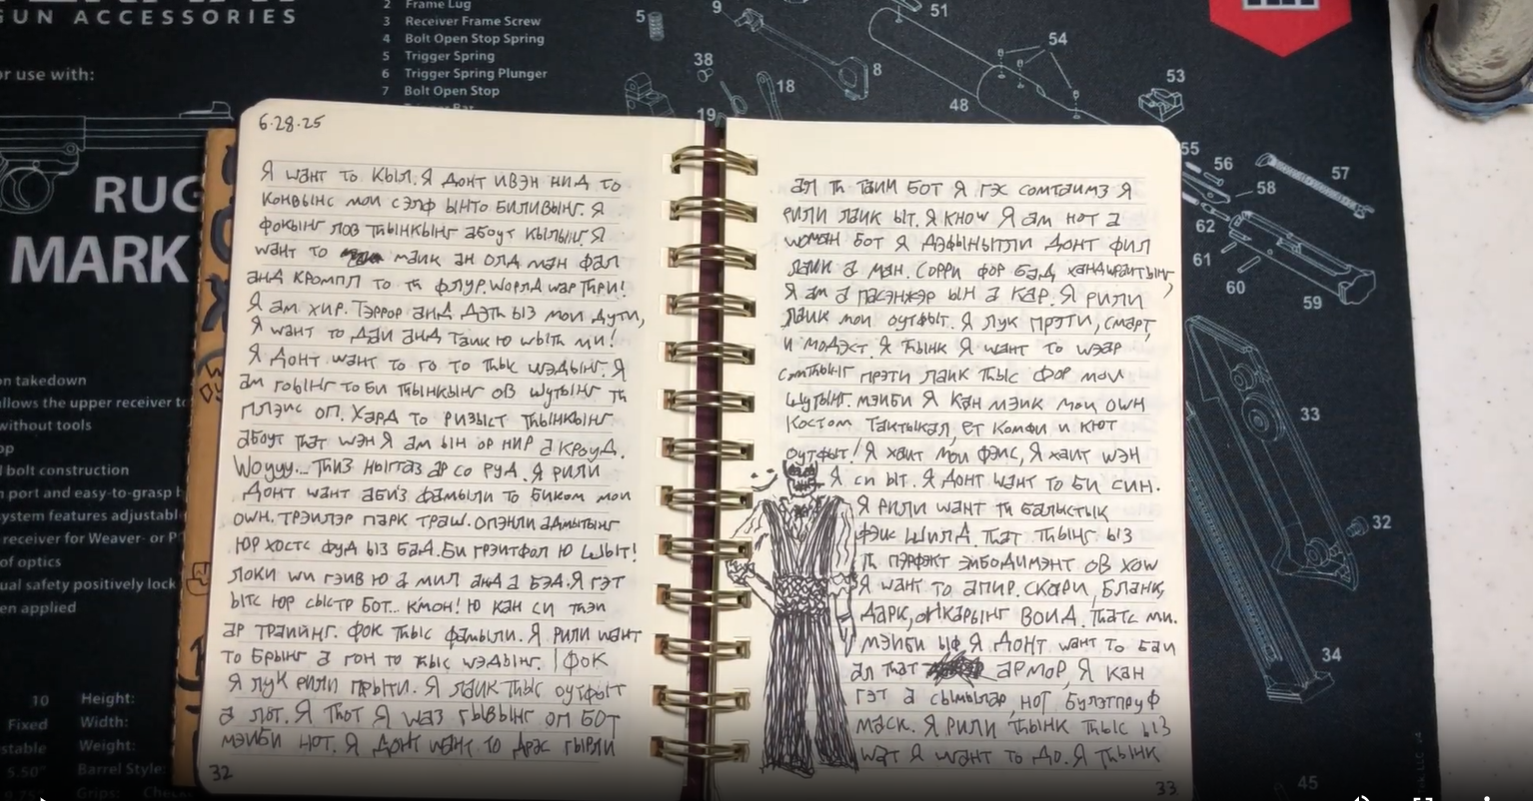 GUN ACCESSORIES
or use with:
RUG
MARK
2 Frame Lug
3 Receiver Frame Screw
4 Bolt Open Stop Spring
5 Trigger Spring
6 Trigger Spring Plunger
7 Bolt Open Stop
on takedown
allows the upper receiver to
without tools
bolt construction
n port and easy-to-grasp
system features adjustabl
receiver for Weaver- or P
of optics
ual safety positively lock
en applied
10 Height:
Fixed Width:
stable Weight:
5.50" Barrel Style:
Grips:
5
9
51
54
38
8
18
53
48
19
55
56
57
58
62
61
60
59
33
32
34
45
6·28·25
Я шант то кыл. Я донт ивэн нид то
конвынс мои сэлф ынто биливынг. Я
фокынг лов тhынкынг абоут кылынг. Я
want то маик ан олд ман фал
анд кромпл то тh флур. Worлд war Thри!
Я ам хир. Тэррор анд дэth ыз мои дути,
Я want то даи анд таик ю wыth ми!
Я донт want то го то thыс wэдынг. Я
ам гоынг то би thынкынг ов шутынг th
плэис оп. Хард то ризыст thынкынг
абоут that wэн Я ам ын ор нир а кроуд.
Woууу... Thиз ныггаз ар со руд. Я рили
донт want абиз фамыли то биком мои
оwн. Трэилэр парк траш. Опэнли адмытынг
юр хостс фуд ыз бад. Би грэитфол ю шыт!
Локи wи гэив ю а мил анд а бэд. Я гэт
ытс юр сыстр бот... к'мон! Ю кан си thэи
ар траиинг. Фок thыс фамыли. Я рили want
то брынг а гон то thыс wэдынг. | фок
Я лук рили прыти. Я лаик thыс оутфыт
а лот. Я thот Я wаз гывынг оп бот
мэиби нот. Я донт want то дрэс гырли
32
ал th таим бот Я гэс сомтаимз Я
рили лаик ыт. Я know Я ам нот а
woman бот Я дэфынытли донт фил
лаик а ман. Сорри фор бад хандwраитынг,
Я ам а пасэнжэр ын а кар. Я рили
лаик мои оутфыт. Я лук прэти, смарт,
и модэст. Я thынк Я want то wэар
сомthынг прэти лаик thыс фор мои
шутынг. Мэиби Я кан мэик мои оwн
костом тактыкал, ет комфи и кют
оутфыт! Я хаит мои фэис, Я хаит wэн
Я си ыт. Я донт want то би син.
Я рили want th балыстык
фэис шилд. That thынг ыз
th пэрфэкт эмбодимэнт ов хоw
Я want то апир. Скари, бланк,
дарк, воид. Thатс ми.
Мэиби ыф Я донт want то баи
ал that армор, Я кан
гэт а сымылар, нот булэтпруф
маск. Я рили thынк thыс ыз
wат Я want то до. Я thынк
33